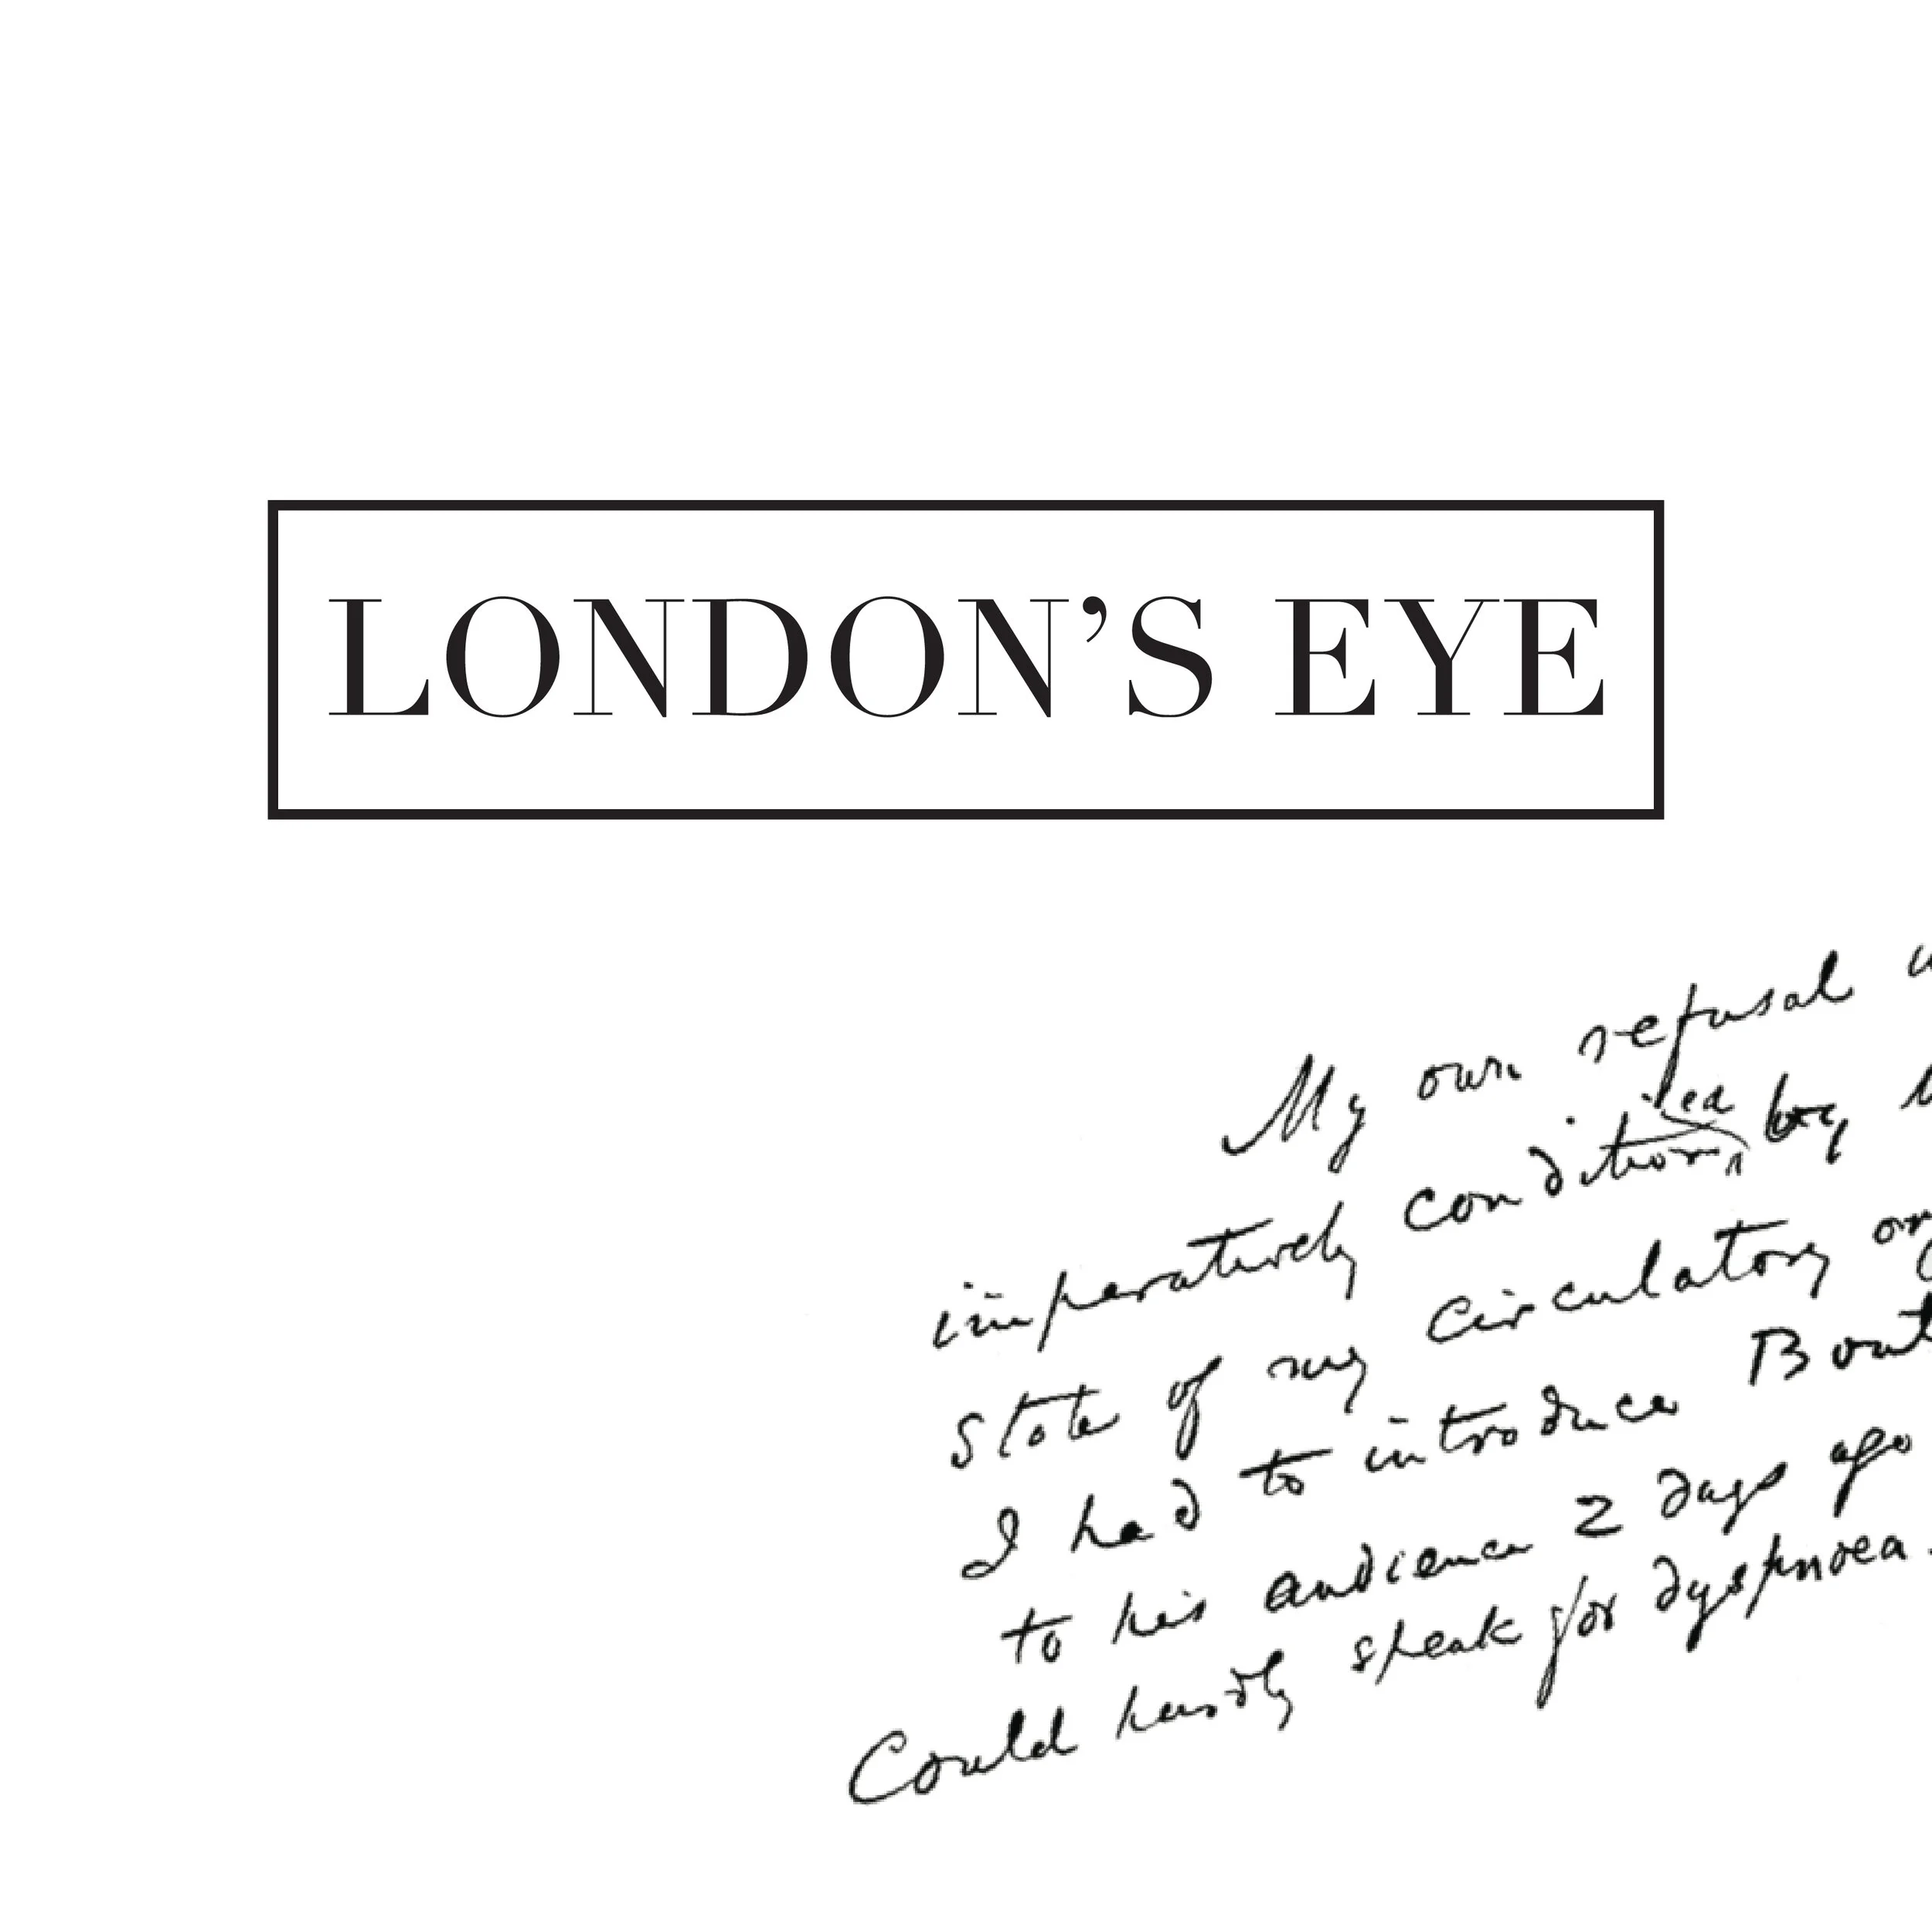 LONDON’S EYE
My own refusal
imperatively conditioned by
state of my circulatory
I had to introduce
to his audience 2 days ago
Could hardly speak for dyspnoea